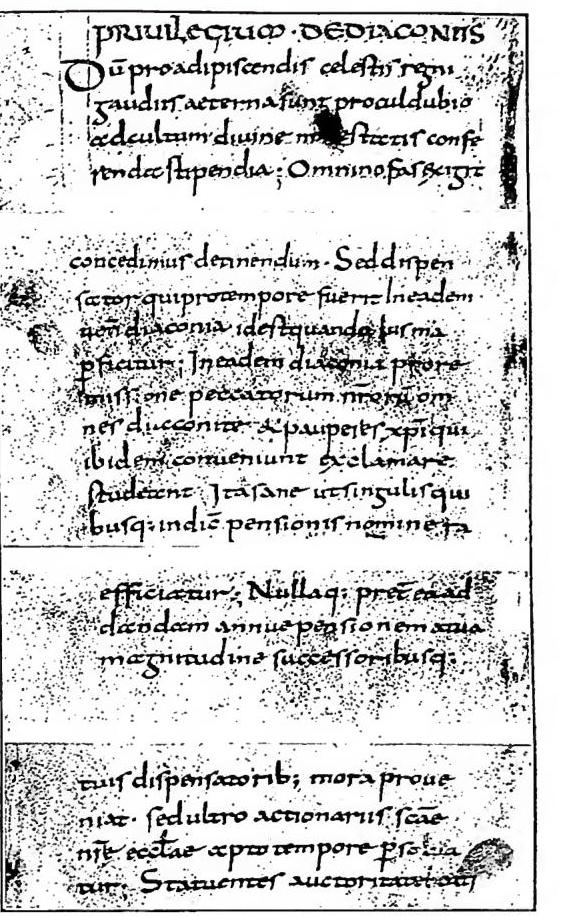 PRIVILEGIUM · DEDIACONIIS
Dū proadipiscendis celestis regni
gaudiis aeterna sunt proculdubio
adcultum divine maiestatis confe
renda stipendia; Omnino fas exigit
concedimus detinendum · Sed dispen
sator quiprotempore fuerit Ineadem
diaconia idestquando lusma
pficitur; Ineadem diaconia p rore
missione peccatorum nrorū om
nes diaconite & pauperes xpi qui
ibidem conveniunt exclamare
studeant Ita sane utsingulisqui
busq: indic̄ pensionis nomine
efficiatur; Nullaq: pret ea ad
dandam annue pensionem a tua
magnitudine successoribusq:
tuis dispensatorib; mora prove
niat · sedultro actionariis scāe
nrē ecclae apto tempore psolva
tur; Statuentes auctoritatei